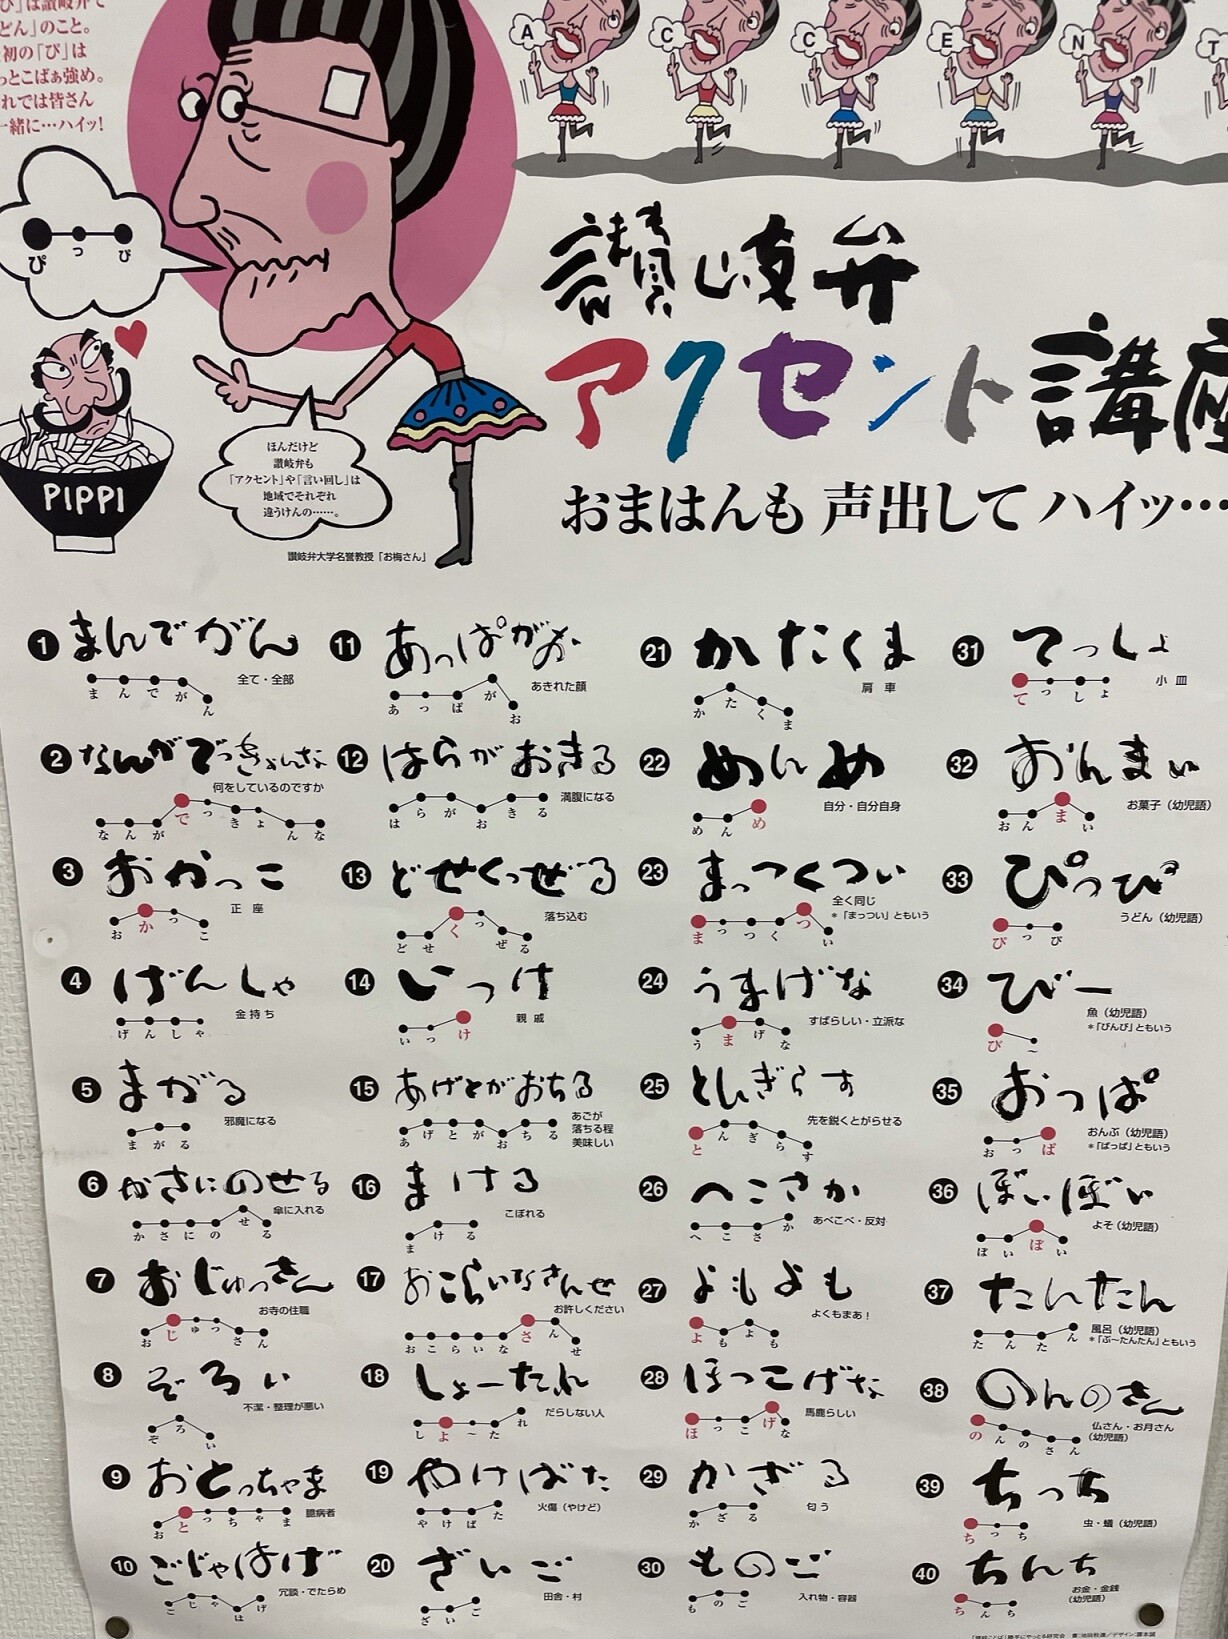 び」は讃岐弁で
どん」のこと。
初の「ぴ」は
っとこばぁ強め。
れでは皆さん
一緒に…ハイッ!
ぴっぴ
PIPPI
ほんだけど
讃岐弁も
「アクセント」や「言い回し」は
地域でそれぞれ
違うけんの……。
讃岐弁大学名誉教授「お梅さん」
A C C E N T
讃岐弁
アクセント講座
おまはんも 声出して ハイッ…
1 まんでがん
全て・全部
まんでがん
2 なんがでっきょんな
何をしているのですか
なんがでっきょんな
3 おかっこ
正座
おかっこ
4 げんしゃ
金持ち
げんしゃ
5 まがる
邪魔になる
まがる
6 かさにのせる
傘に入れる
かさにのせる
7 おじゅっさん
お寺の住職
おじゅっさん
8 ぞろい
不潔・整理が悪い
ぞろい
9 おとっちゃま
臆病者
おとっちゃま
10 ごじゃはげ
冗談・でたらめ
ごじゃはげ
11 あっぱがお
あきれた顔
あっぱがお
12 はらがおきる
満腹になる
はらがおきる
13 どせくっぜる
落ち込む
どせくっぜる
14 いっけ
親戚
いっけ
15 あげとがおちる
あごが
落ちる程
美味しい
あげとがおちる
16 まける
こぼれる
まける
17 おこらいなさんせ
お許しください
おこらいなさんせ
18 しょーたれ
だらしない人
しょ~たれ
19 やけばた
火傷(やけど)
やけばた
20 ざいご
田舎・村
ざいご
21 かたくま
肩車
かたくま
22 めんめ
自分・自分自身
めんめ
23 まっつくつい
全く同じ
*「まっつい」ともいう
まっつくつい
24 うまげな
すばらしい・立派な
うまげな
25 とんぎらす
先を鋭くとがらせる
とんぎらす
26 へこさか
あべこべ・反対
へこさか
27 よもよも
よくもまあ!
よもよも
28 ほっこげな
馬鹿らしい
ほっこげな
29 かざる
匂う
かざる
30 ものご
入れ物・容器
ものご
31 てっしょ
小皿
てっしょ
32 おんまい
お菓子(幼児語)
おんまい
33 ぴっぴ
うどん(幼児語)
ぴっぴ
34 びー
魚(幼児語)
*「びんび」ともいう
び~
35 おっぱ
おんぶ(幼児語)
*「ぱっぱ」ともいう
おっぱ
36 ぼいぼい
よそ(幼児語)
ぼいぼい
37 たんたん
風呂(幼児語)
*「ぶ~たんたん」ともいう
たんたん
38 のんのさん
仏さん・お月さん
(幼児語)
のんのさん
39 ちっち
虫・蟻(幼児語)
ちっち
40 ちんち
お金・金銭
(幼児語)
ちんち